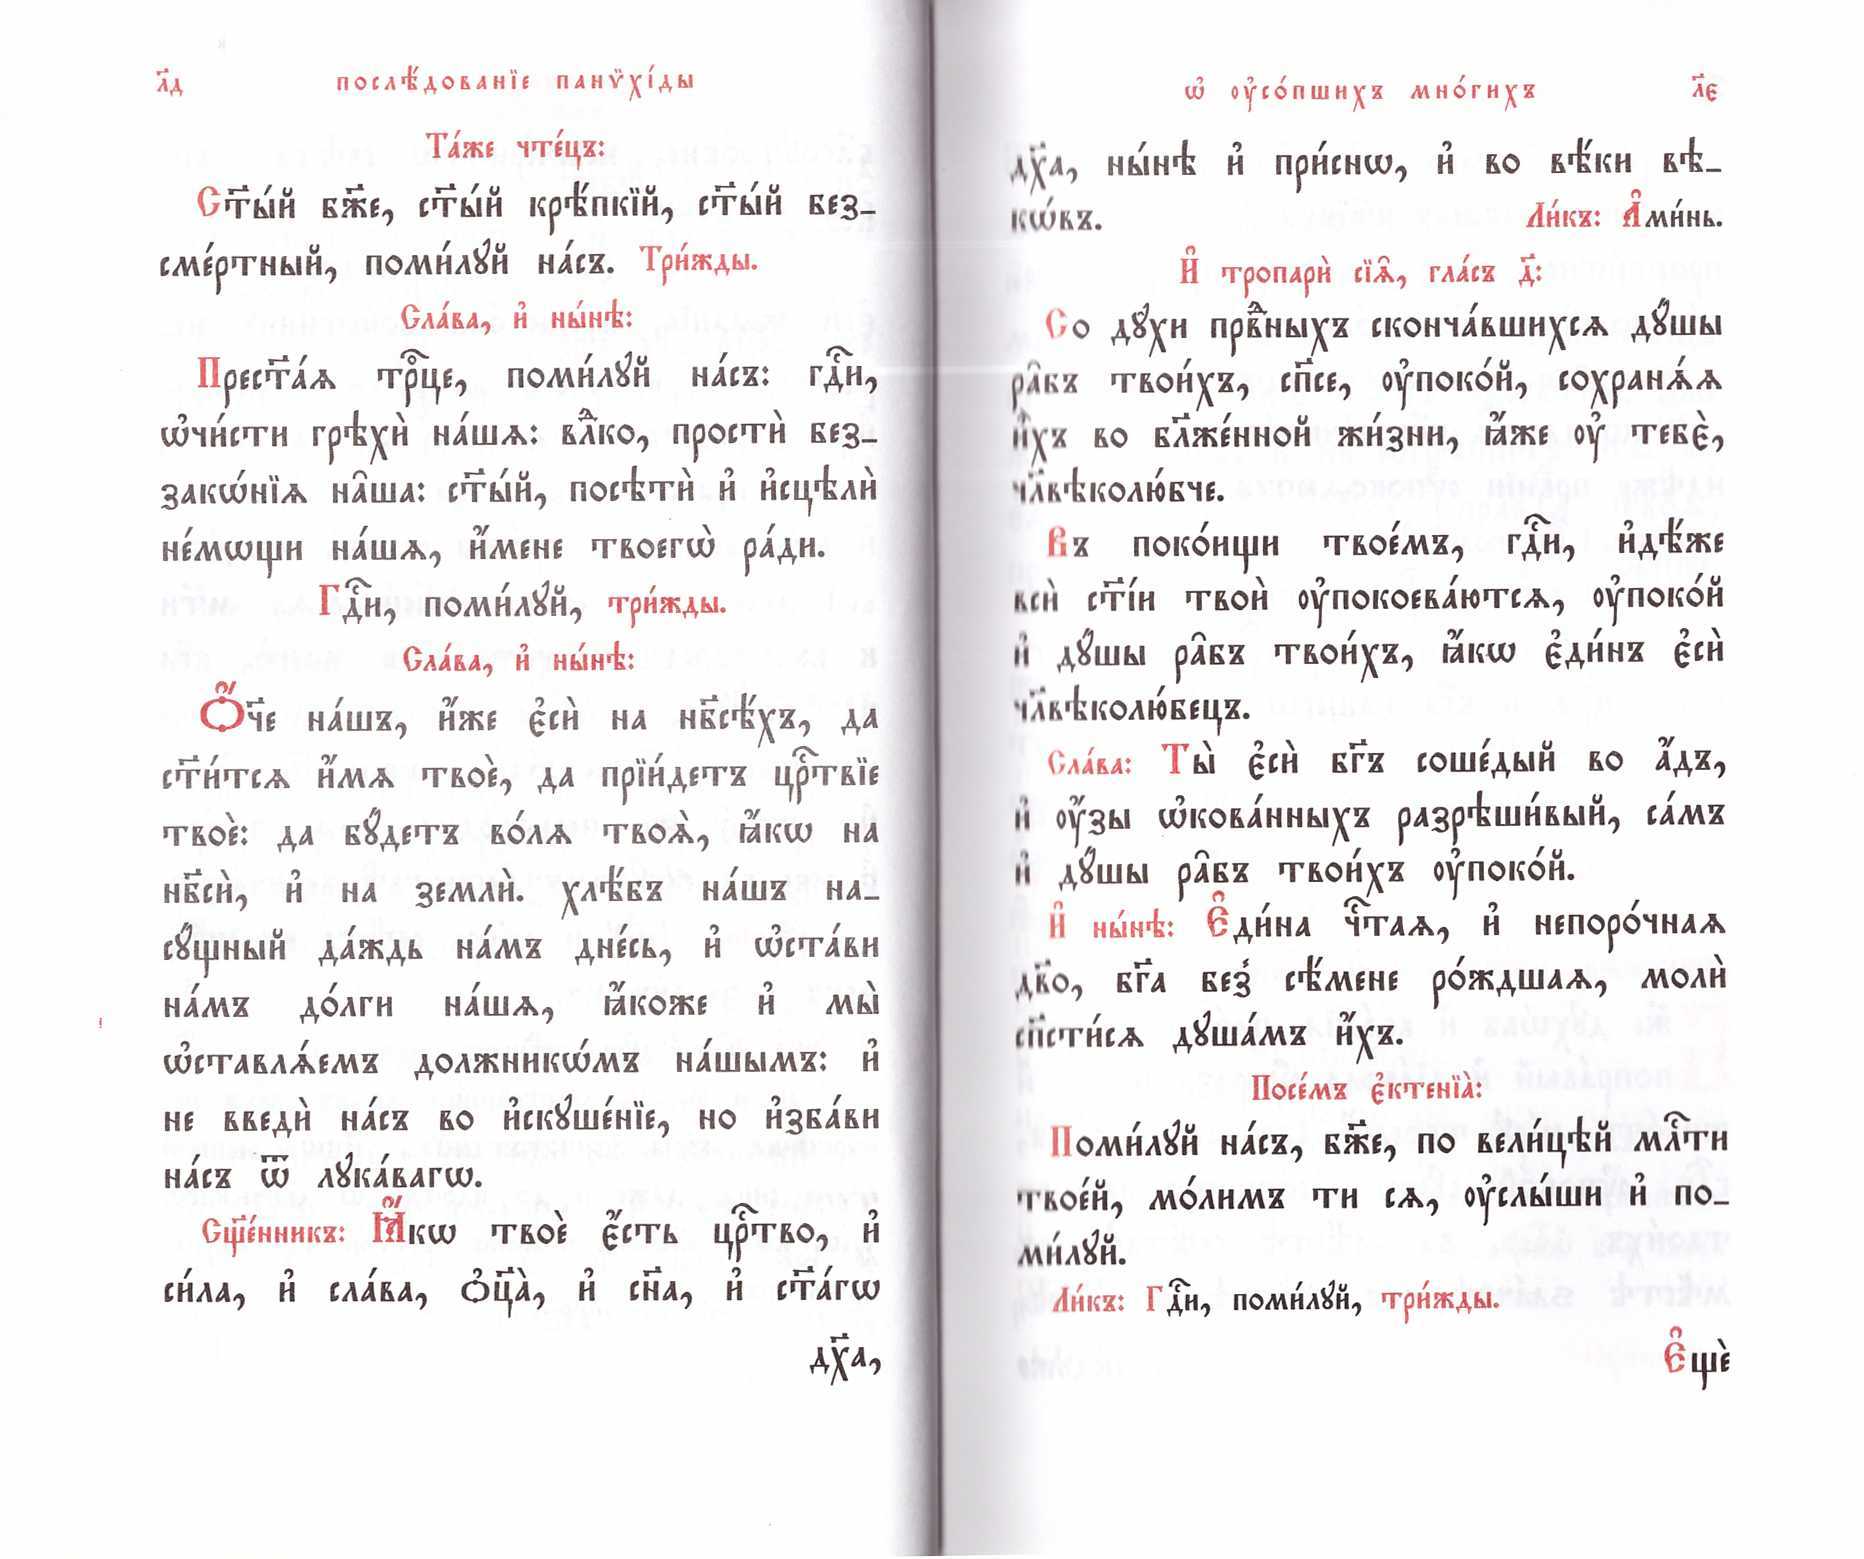 л҃д послѣ́дованїе панѷхі́ды
Та́же чте́цъ:
Ст҃ы́й бж҃е, ст҃ы́й крѣ́пкїй, ст҃ы́й без_
сме́ртный, поми́лꙋй на́съ. Три́жды.
Сла́ва, и҆ ны́нѣ:
Прест҃а́ѧ трⷪ҇це, поми́лꙋй на́съ: гдⷭ҇и,
ѡ҆чи́сти грѣхѝ на́шѧ: влⷣко, простѝ без_
зако́нїѧ на̑ша: ст҃ы́й, посѣтѝ и҆ и҆сцѣлѝ
не́мѡщи на́шѧ, и҆́мене твоегѡ̀ ра́ди.
Гдⷭ҇и, поми́лꙋй, три́жды.
Сла́ва, и҆ ны́нѣ:
Ѻ҆́ч҃е на́шъ, и҆́же є҆сѝ на нб҃сѣ́хъ, да
ст҃и́тсѧ и҆́мѧ твоѐ, да прїи́детъ црⷭ҇твїе
твоѐ: да бꙋ́детъ во́лѧ твоѧ̀, ꙗ҆́кѡ на
нб҃сѝ, и҆ на землѝ. хлѣ́бъ на́шъ на_
сꙋ́щный да́ждь на́мъ дне́сь, и҆ ѡ҆ста́ви
на́мъ до́лги на́шѧ, ꙗ҆́коже и҆ мы̀
ѡ҆ставлѧ́емъ должникѡ́мъ на́шымъ: и҆
не введѝ на́съ во и҆скꙋше́нїе, но и҆зба́ви
на́съ ѿ лꙋка́вагѡ.
Сщ҃е́нникъ: Ꙗ҆́кѡ твоѐ є҆́сть црⷭ҇тво, и҆
си́ла, и҆ сла́ва, ѻ҆ц҃а̀, и҆ сн҃а, и҆ ст҃а́гѡ
дх҃а,
ѡ҆ ᲂу҆со́пшихъ мно́гихъ л҃є
дх҃а, ны́нѣ и҆ при́снѡ, и҆ во вѣ́ки вѣ_
кѡ́въ. Ли́къ: А҆ми́нь.
И҆ тропарѝ сїѧ̑, гла́съ д҃:
Со дꙋ́хи првⷣныхъ сконча́вшихсѧ дꙋ́шы
ра̑бъ твои́хъ, сп҃се, ᲂу҆поко́й, сохранѧ́ѧ
и҆̀хъ во бл҃же́нной жи́зни, ꙗ҆́же ᲂу҆ тебє̀,
чл҃вѣколю́бче.
Въ поко́ищи твое́мъ, гдⷭ҇и, и҆дѣ́же
всѝ ст҃і́и твоѝ ᲂу҆покоева́ютсѧ, ᲂу҆поко́й
и҆ дꙋ́шы ра̑бъ твои́хъ, ꙗ҆́кѡ є҆ди́нъ є҆сѝ
чл҃вѣколю́бецъ.
Сла́ва: Ты̀ є҆сѝ бг҃ъ соше́дый во а҆́дъ,
и҆ ᲂу҆́зы ѡ҆кова́нныхъ разрѣши́вый, са́мъ
и҆ дꙋ́шы ра̑бъ твои́хъ ᲂу҆поко́й.
И҆ ны́нѣ: Є҆ди́на чⷭ҇таѧ, и҆ непоро́чнаѧ
дв҃о, бг҃а без̾ сѣ́мене ро́ждшаѧ, молѝ
сп҃сти́сѧ дꙋша́мъ и҆́хъ.
Посе́мъ є҆ктенїа̀:
Поми́лꙋй на́съ, бж҃е, по вели́цѣй млⷭ҇ти
твое́й, мо́лимъ ти сѧ, ᲂу҆слы́ши и҆ по_
ми́лꙋй.
Ли́къ: Гдⷭ҇и, поми́лꙋй, три́жды.
Є҆щѐ